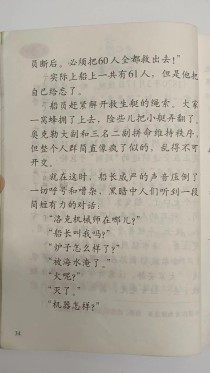 员断后。必须把60人全都救出去！”
实际上船上一共有61人，但是他把
自己给忘了。
船员赶紧解开救生艇的绳索。大家
一窝蜂拥了上去，险些儿把小艇弄翻了。
奥克勒大副和三名二副拼命维持秩序，
但整个人群简直像疯了似的，乱得不可
开交。
就在这时，船长威严的声音压倒了
一切呼号和嘈杂，黑暗中人们听到一段
简短有力的对话。
“洛克机械师在哪儿？”
“船长叫我吗？”
“炉子怎么样了？”
“被海水淹了。”
“火呢？”
“灭了。”
“机器怎样？”
34